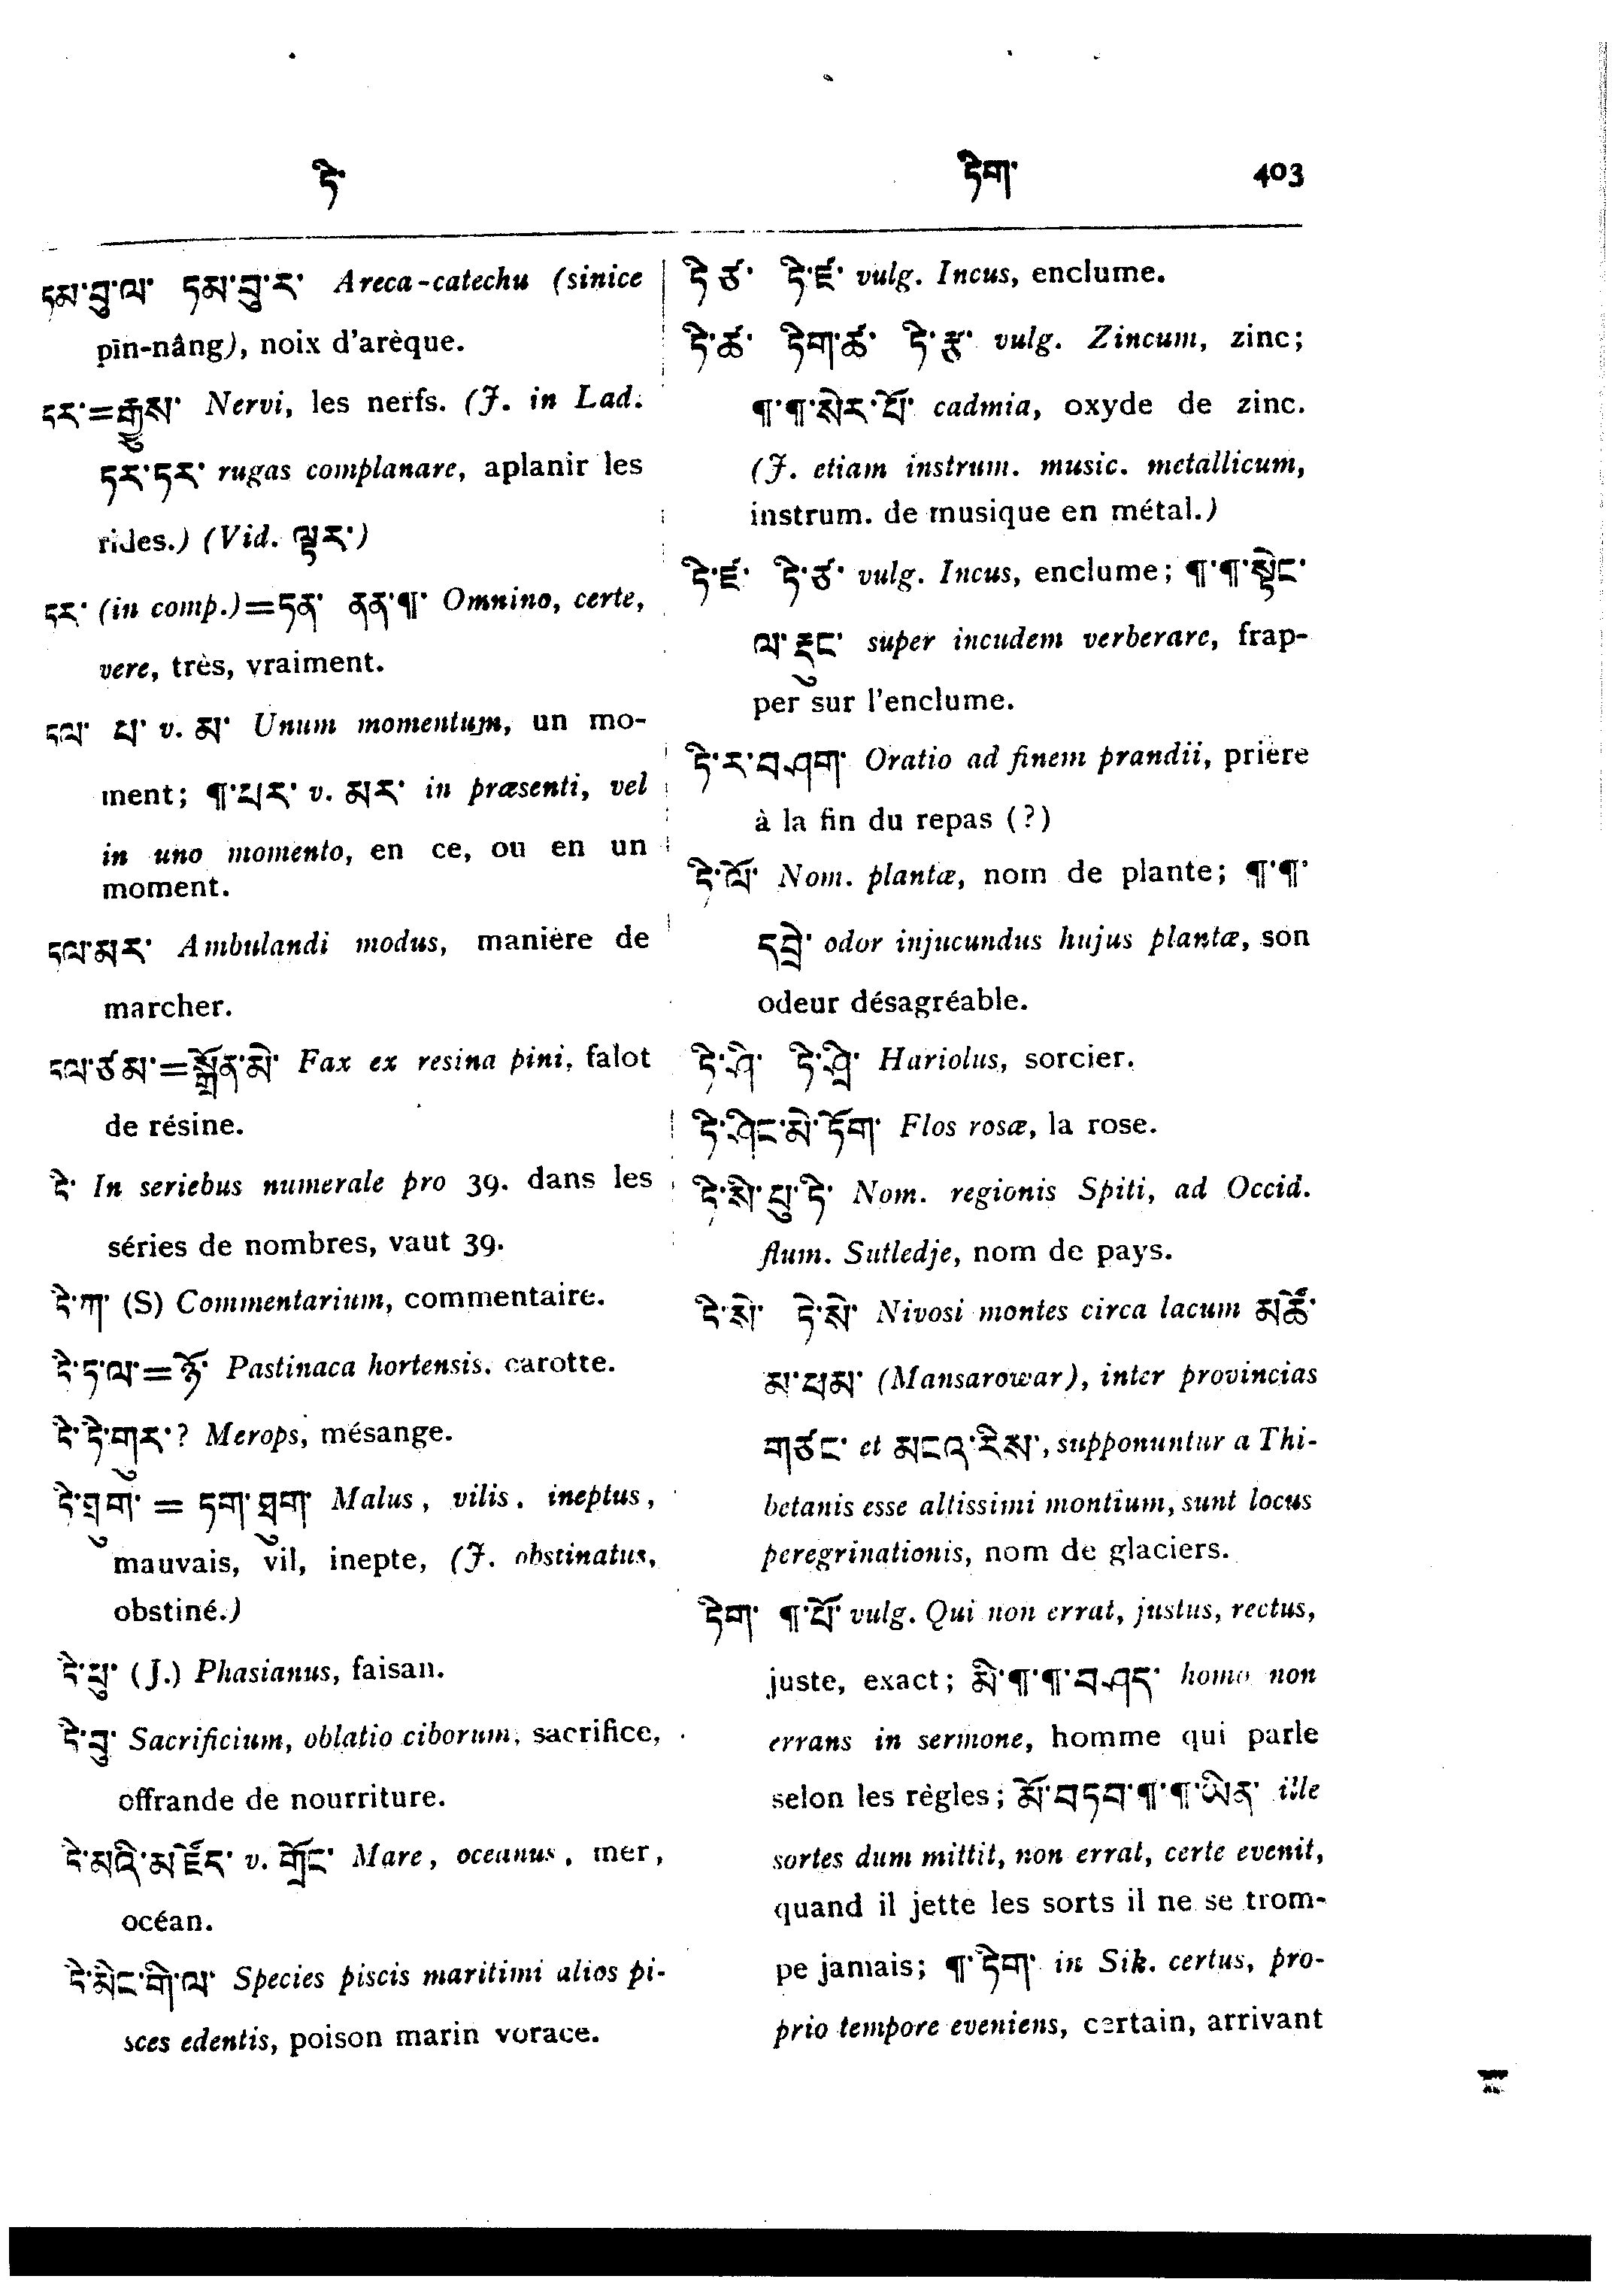 ཏི་
ཏིག་ 403
ཏམ་བུ་ལ་ ཏམ་བུ་ར་ Areca-catechu (sinice
pīn-nâng), noix d'arèque.
ཏར་=རྒྱུས་ Nervi, les nerfs. (J. in Lad.
ཏར་ཏར་ rugas complanare, aplanir les
rides.) (Vid. ལྟར་)
ཏར་ (in comp.)=ཏན་ ནན་¶་ Omnino, certe,
vere, très, vraiment.
ཏལ་ པ་ v. མ་ Unum momentum, un mo-
ment; ¶་པར་ v. མར་ in præsenti, vel
in uno momento, en ce, ou en un
moment.
ཏལ་མར་ Ambulandi modus, manière de
marcher.
ཏལ་ཙམ་=སྒྲོན་མེ་ Fax ex resina pini, falot
de résine.
ཏི་ In seriebus numerale pro 39. dans les
séries de nombres, vaut 39.
ཏི་ཀ་ (S) Commentarium, commentaire.
ཏི་ཏ་ལ་=ཉོ་ Pastinaca hortensis. carotte.
ཏི་ཏི་གུར་? Merops, mésange.
ཏི་ཐུག་ = ཏག་ཐུག་ Malus, vilis, ineptus,
mauvais, vil, inepte, (J. obstinatus,
obstiné.)
ཏི་པུ་ (J.) Phasianus, faisan.
ཏི་བུ་ Sacrificium, oblatio ciborum, sacrifice,
offrande de nourriture.
ཏི་མའི་མཛོད་ v. གྲོང་ Mare, oceanus, mer,
océan.
ཏི་མིང་གི་ལ་ Species piscis maritimi alios pi-
sces edentis, poison marin vorace.
ཏི་ཙ་ ཏི་ཛ་ vulg. Incus, enclume.
ཏི་ཚ་ ཏིག་ཚ་ ཏི་རྩ་ vulg. Zincum, zinc;
¶་¶་སེར་པོ་ cadmia, oxyde de zinc.
(J. etiam instrum. music. metallicum,
instrum. de musique en métal.)
ཏི་ཛ་ ཏི་ཙ་ vulg. Incus, enclume; ¶་¶་སྟེང་
ལ་རྡུང་ super incudem verberare, frap-
per sur l'enclume.
ཏི་ར་བ་ཤག་ Oratio ad finem prandii, prière
à la fin du repas (?)
ཏི་ལོ་ Nom. plantæ, nom de plante; ¶་¶་
དྲི་ odor injucundus hujus plantæ, son
odeur désagréable.
ཏི་ཤི་ ཏི་ཤྲི་ Hariolus, sorcier.
ཏི་ཤིང་མེ་ཏོག་ Flos rosæ, la rose.
ཏི་སི་པུ་ཏི་ Nom. regionis Spiti, ad Occid.
flum. Sutledje, nom de pays.
ཏི་སེ་ ཏེ་སེ་ Nivosi montes circa lacum མཚོ་
མ་ཕམ་ (Mansarowar), inter provincias
གཙང་ et མངའ་རིས་, supponuntur a Thi-
betanis esse altissimi montium, sunt locus
peregrinationis, nom de glaciers.
ཏིག་ ¶་པོ་ vulg. Qui non errat, justus, rectus,
juste, exact; མི་¶་¶་བཤད་ homo non
errans in sermone, homme qui parle
selon les règles; མོ་བཏབ་¶་¶་ཡིན་ ille
sortes dum mittit, non errat, certe evenit,
quand il jette les sorts il ne se trom-
pe jamais; ¶་ཏིག་ in Sik. certus, pro-
prio tempore eveniens, certain, arrivant